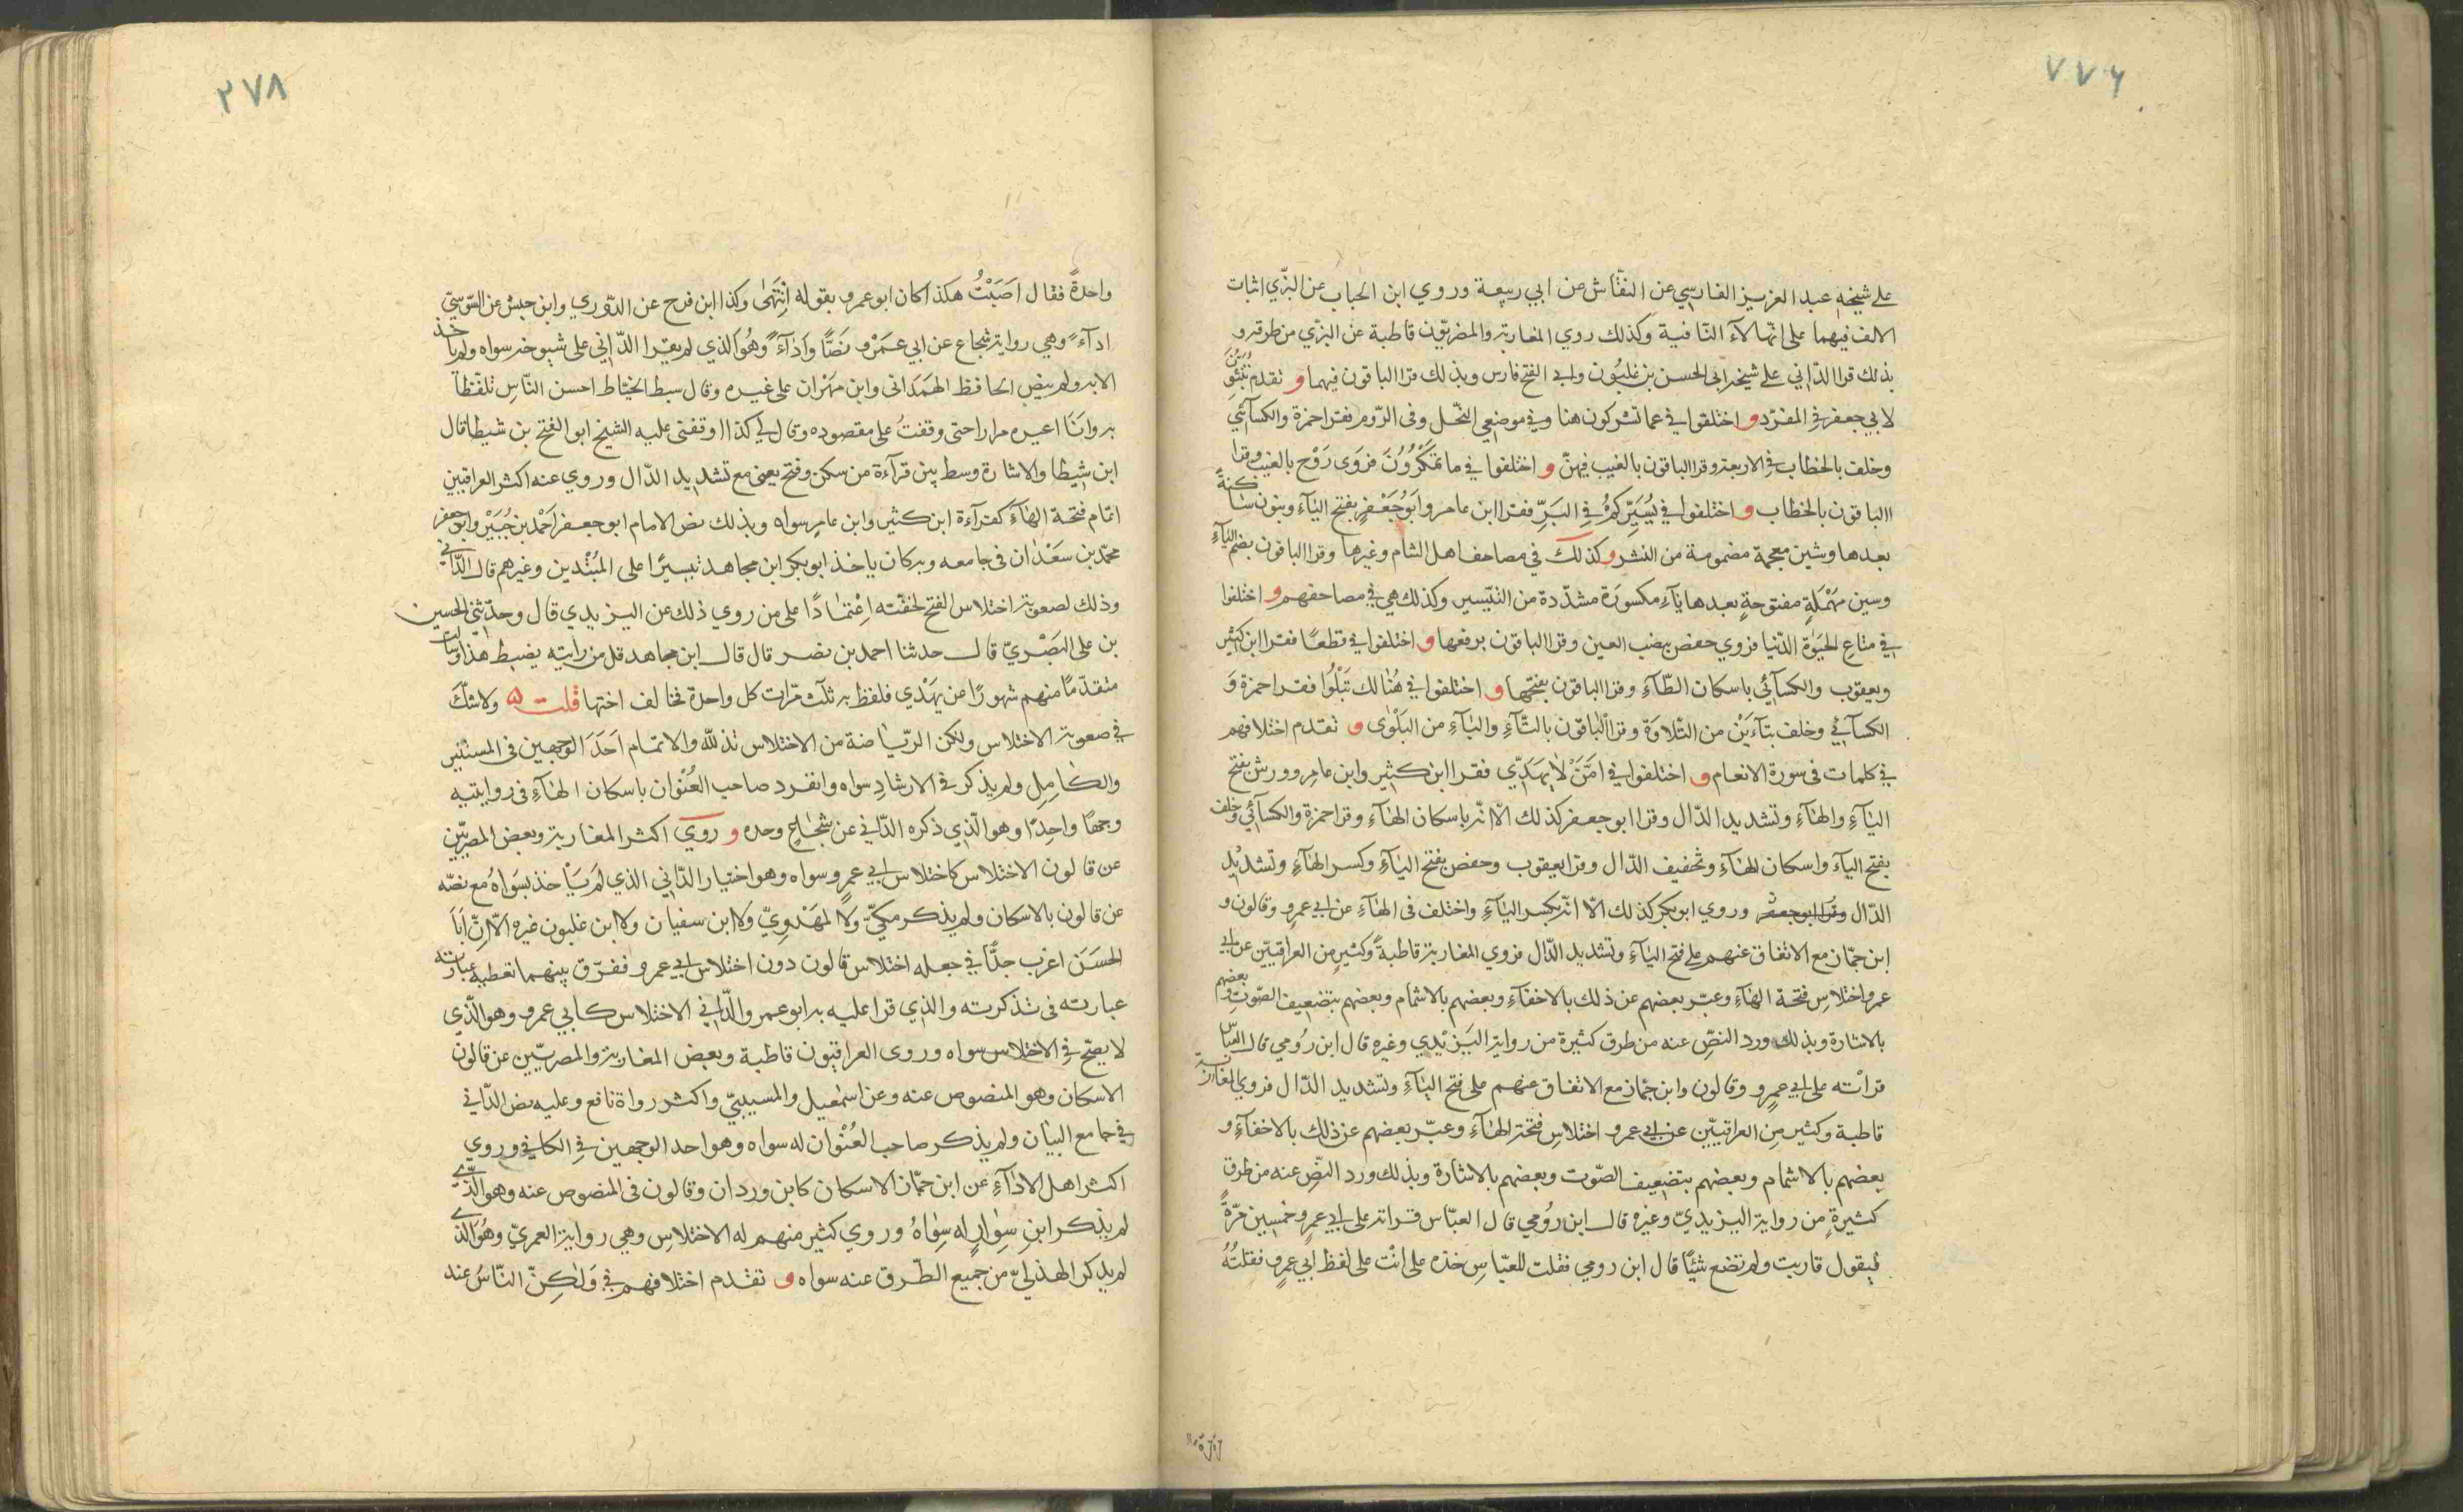 ٧٧٦
على شيخه عبد العزيز الفارسي عن النقّاش عن ابي ربيعة وروي ابن الحباب عن البزّي اثبات
الالف فيهما على انّها لآء النّافية وكذلك روي المغاربة والمصريّون قاطبة عن البزّي من طرقه و
بذلك قرا الدّاني على شيخه ابي الحسن بن غلبُون وابي الفتح فارس وبذلك قرا الباقون فيهما و تقدم تُنَبِّئُونَ
لابي جعفر في المفرد و اختلفوا في عما تشركون هنا وفي موضعي النّحل وفي الرّوم فقرا حمزة والكسآئي
وخلف بالخطاب في الاربعة وقرا الباقون بالغيب فيهنّ و اختلفوا في ما تمكُرُونَ فروي رَوْح بالغيب وقرا
الباقون بالخطاب و اختلفوا في يُسَيِّركمُ في البَرِّ فقرا ابن عامر وابوُ جَعْفرٍ بفتح اليآءِ وبنون ساكنةٍ
بعدها وشين معجمة مضمومة من النشر وكذلك في مصاحف اهل الشام وغيرها وقرا الباقون بضم اليآءِ
وسين مُهْمَلةٍ مفتوحةٍ بعدها يآءِ مكسورَة مشدّدة من التّيسير وكذلك هي في مصاحفهم و اختلفوا
في متاع الحيَوٰة الدّنيا فروي حفص بنصب العين وقرا الباقون برفعها و اختلفوا في قطعًا فقرا ابن كثير
ويعقوب والكسآئي باسكان الطّآءِ وقرا الباقون بفتحها و اختلفوا في هُنٰالك تَبْلُوا فقرا حمزة وَ
الكسآئي وخلف بتآءَيْن من التّلاوَة وقرا الباقون بالتّآءِ والبٰآءِ من البَلْوٰى و تقدم اختلافهم
في كلمات في سورة الانعام و اختلفوا في امَّنْ لٰا يهَدّي فقرا ابن كثير وابن عامر وورش بفتح
اليٰآءِ والهٰآءِ وتشديد الدّال وقرا ابو جعفر كذلك الّا انّه باسكان الهٰآءِ وقرا حمزة والكسآئي وخلف
بفتح اليآءِ واسكان الهٰآءِ وتخفيف الدّال وقرا يعقوب وحفص بفتح اليٰآءِ وكسر الهٰآءِ وتشديْد
الدّال وقرا ابو جعفر وروي ابوبكر كذلك الّا انّه بكسر اليٰآءِ واختلف في الهٰآءِ عن ابي عمرو وقالون و
ابن جمّاز مع الاتفاق عنهم على فتح اليٰآءِ وتشديد الدّال فروي المغاربة قاطبةً وكثير من العراقيّين عن ابي
عمرو اختلاسِ فتحة الهٰآءِ وعبّر بعضهم عن ذلك بالاخفٰآءِ وبعضهم بالاشمام وبعضهم بتضعيف الصّوت وبعضهم
بالاشارة وبذلك ورد النصِّ عنه من طرق كثيرة من رواية اليَزيْدي وغيره قال ابن رُومي قال العبّاس
قراْته على ابي عمرٍو وقالون وابن جمّاز مع الاتفاق عنهم على فتح اليٰآءِ وتشديد الدّال فروي المغاربة
قاطبة وكثير مِن العراقيّين عن ابي عمرو اختلاسِ فتحة الهٰآءِ وعبّر بعضهم عن ذلك بالاخفآءِ و
بعضهم بالاشمام وبعضهم بتضعيف الصّوت وبعضهم بالاشارة وبذلك ورد النصّ عنه من طرق
كثيرةٍ من رواية اليزيديّ وغيره قال ابن رُومي قال العبّاس قراته على ابي عمرٍو خمسين مرّةً
فيقول قاربت ولم تضع شيئًا قال ابن رومي فقلت للعبّاسِ خذه على انْت على لفظ ابي عمرٍو فقلتُهُ
٢٧٨
واحدةً فقال اَصَبْتُ هكذا كان ابو عمرو يقوله اِنتَهىٰ وكذا ابن فرح عن الدّوري وابن حبش عن السّوسيّ
ادآءً وهي رواية شجاع عن ابي عمَرْو نصًّا واَدآءً وهُوَ الذي لم يقرا الدّاني على شيوخه سواه ولم ياخذ
الا به ولم ينص الحافظ الهمَداني وابن مهَرْان على غيره وقال سبط الخيّاط احسن النّاسِ تلفّظا
به وانَا اعيره مرارا حتى وقفتُ على مقصوده وقال لي كذا اوقفنى عليه الشيخ ابو الفتح بن شيطا قال
ابن شيطا والاشارة وسط بين قرآءة من سكن وفتح يعني مع تشديد الدّال وروي عنه اكثر العراقيين
اتمام فتحة الهٰآءِ كقرآءة ابن كثير وابن عامرٍ سواه وبذلك نص الامام ابو جعفر اَحْمد بن جُبَيْر وابو جعفر
محمّد بن سعَدْان في جامعه وبه كان ياخذ ابوبكر ابن مجاهد تيسيرًا على المُبْتدين وغيرهم قال الدّاني
وذلك لصعوبة اختلاس الفتح لخفّته اعْتمٰادًا على من روي ذلك عن اليزيدي قال وحدّثني الحسين
بن على البَصْريّ قال حدثنا احمد بن نصر قال قال ابن مجاهد قل من رايته يضبط هذا وسالت
متقدّمًا منهم شهورًا من يهَدْي فلفظ به ثلث مرّات كل واحدة تخالف اختها قلت ۵ ولا شكّ
في صعوبة الاختلاس ولكن الريّاضة من الاختلاس تذلّله والاتمام اَحَدَ الوَجهين في المستنير
والكٰامِل ولم يذكر في الارشادِ سواه وانفرد صاحب العُنْوان باسكان الهٰآءِ في روايتيه
وجهًا واحِدًا وهو الّذي ذكره الدّاني عن شجٰاعِ وحده و روي اكثر المغاربة وبعض المصريّين
عن قالون الاختلاس كاختلاس ابي عمرٍو سواه وهو اختيار الدّاني الذي لَم يَاخذ بسوَاهُ مع نصّه
عن قالون بالاسكان ولم يذكر مكيّ ولَا المهَدْوِيّ ولا ابن سفيان ولا ابن غلبون غيره الّا انّ اَبا
الحسَن اغرب جدًّا في جعله اختلاس قالون دون اختلاس ابي عمرو ففرّق بينهما تعطيه عبارته
عبارته في تذكرته والذي قرا عليه به ابو عمرو الدّاني الاختلاس كابي عمرو وهو الّذي
لا يصّح في الاختلاس سواه وروى العراقيون قاطبة وبعض المغاربة والمصريّين عن قالون
الاسكان وهو المنصوص عنه وعن اسمٰعيل والمسيبيّ واكثر رواة نافع وعليه نص الدّاني
في جامع البيٰان ولم يذكر صاحب العُنْوان له سواه وهو احد الوجهين في الكافي وروي
اكثر اهل الادٰآءِ عن ابن جمّاز الاسكان كابن وردان وقالون في المنصوص عنه وهو الّذي
لم يذكر ابنِ سِوٰارٍ له سِوٰاهُ وروي كثير منهم له الاختلاسِ وهي رواية العمريّ وهُو الّذي
لم يذكر الهذليّ من جميع الطّرق عنه سواه و تقدم اختلافهم في وَلٰكِنّ النّاسَ عند